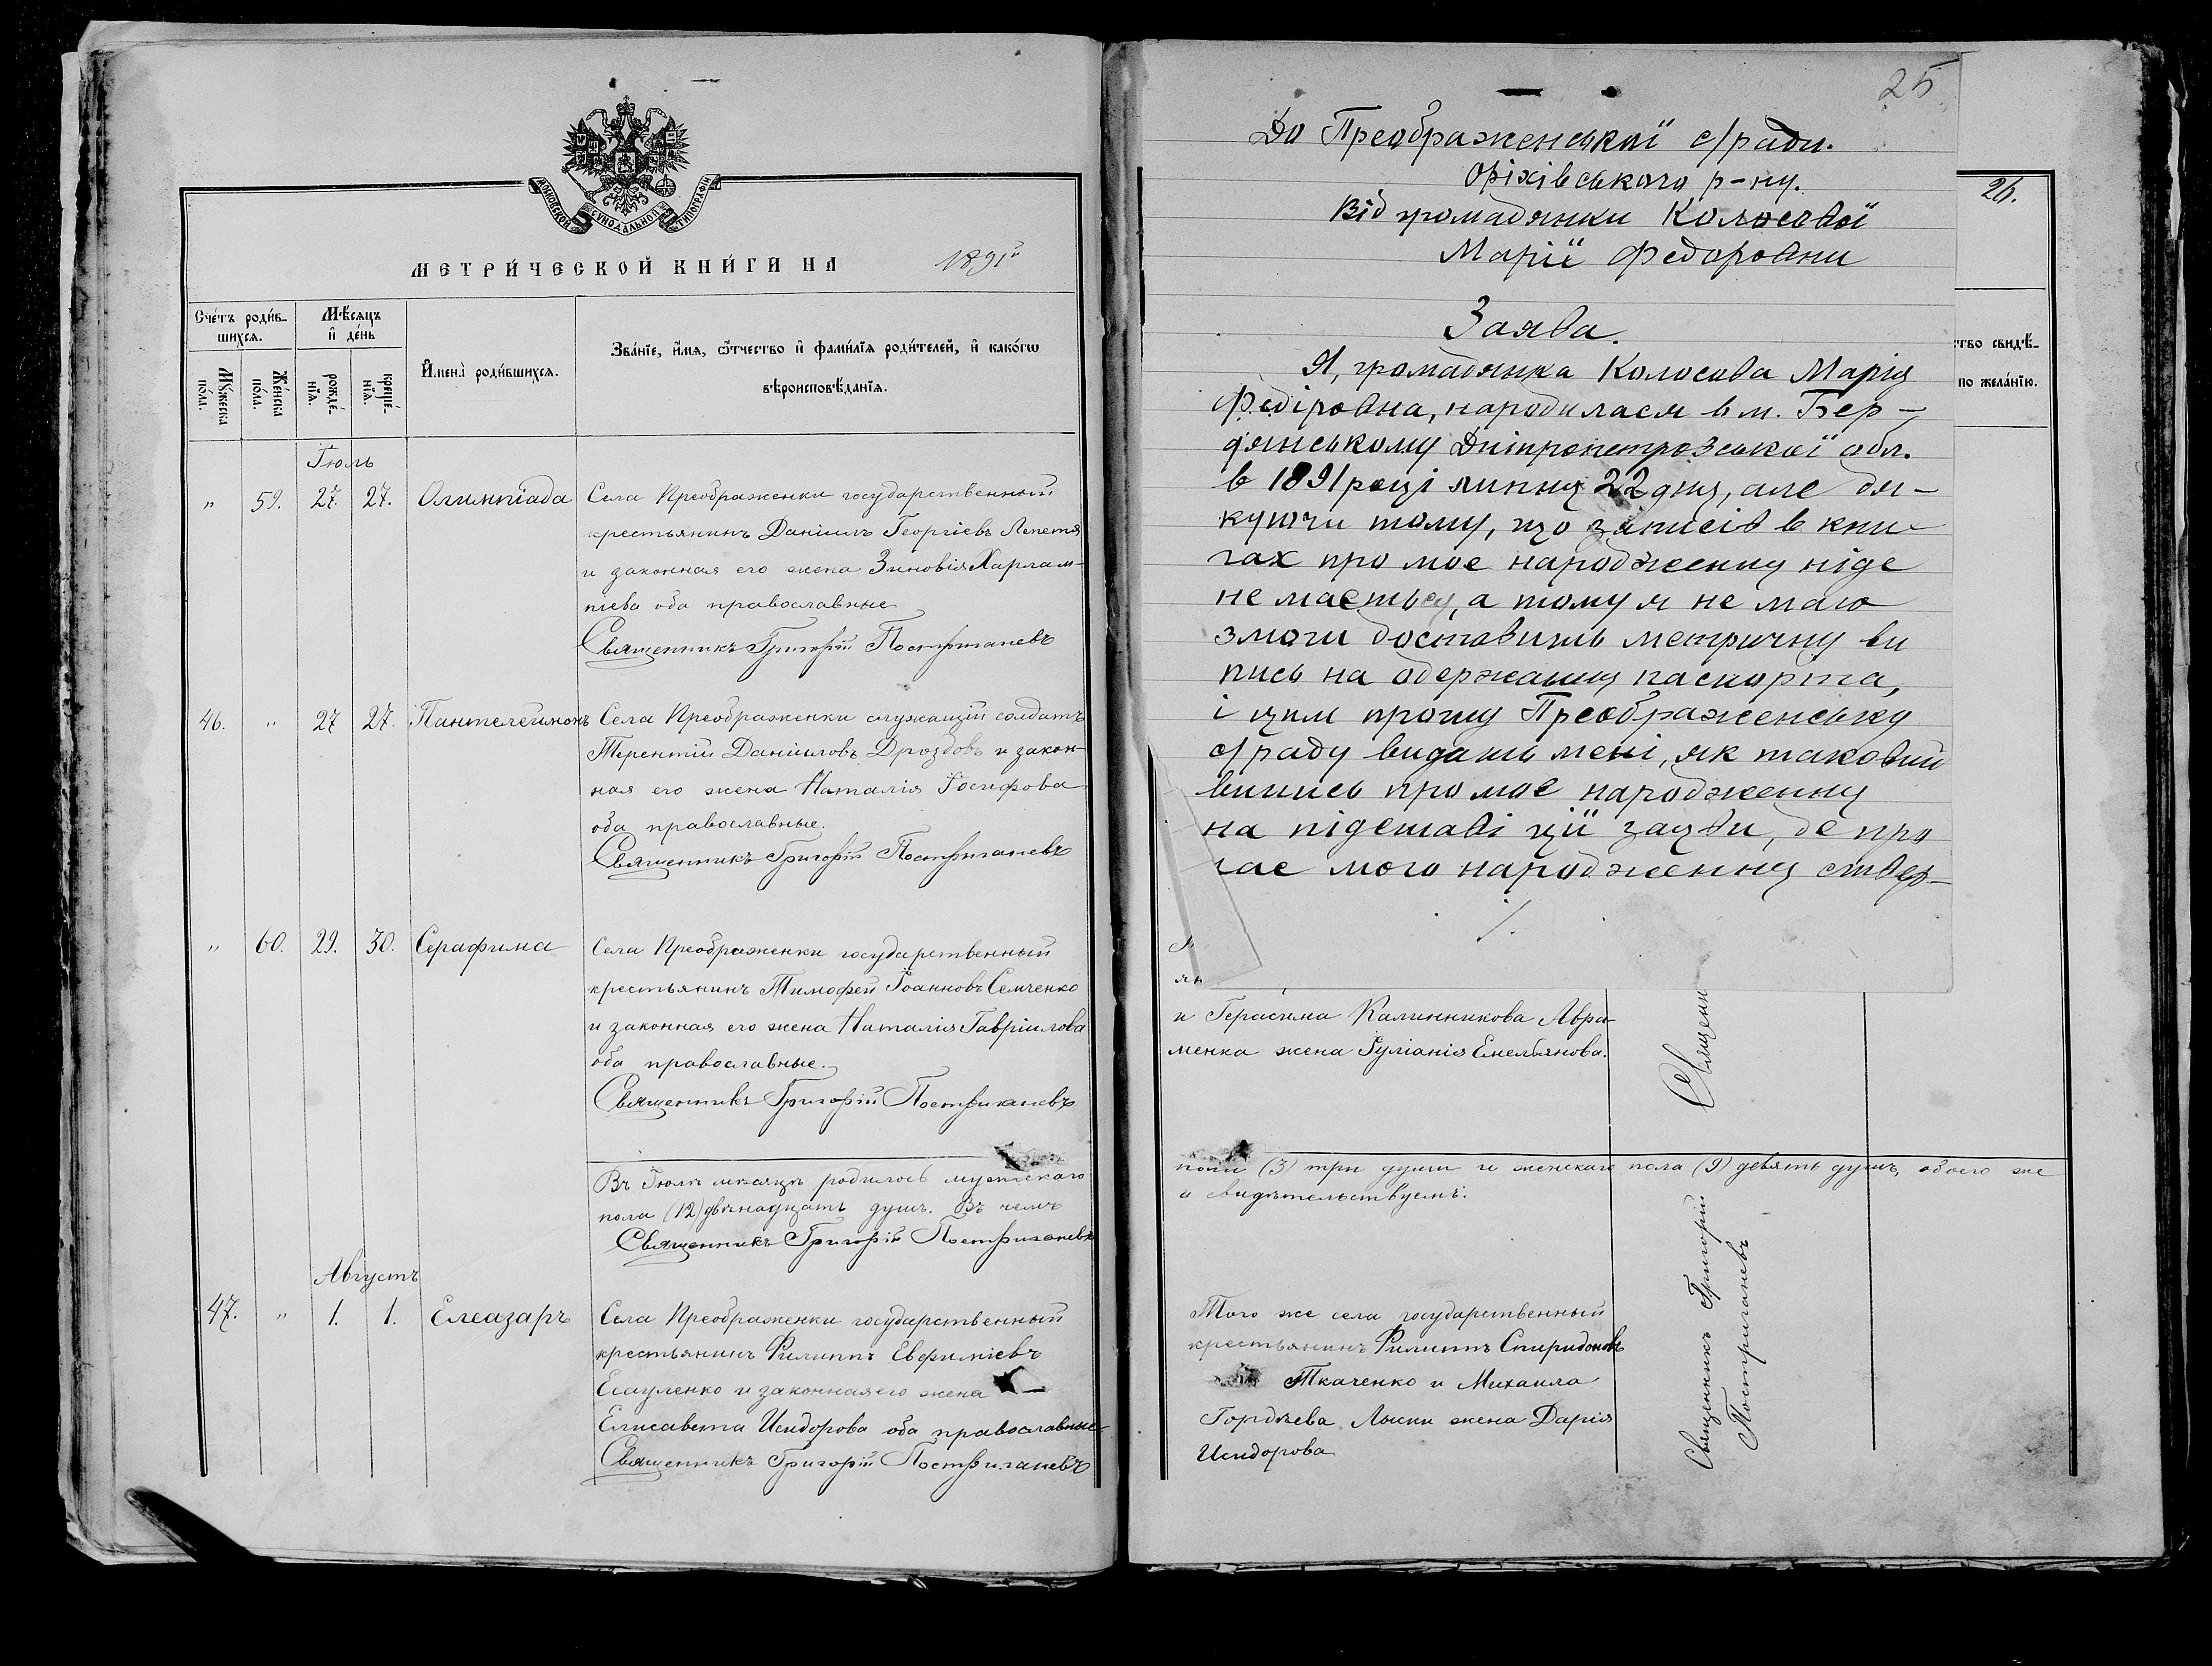 МОСКОВСКОЙ СѴНОДАЛЬНОЙ ТИПОГРАФІИ
МЕТРИ́ЧЕСКОЙ КНИ́ГИ НА 1891й
Сче́тъ роди́в-
шихсѧ.
Мѣ́сѧцъ
и҆ де́нь
Мꙋ́жеска
по́ла.
Же́нска
по́ла.
рожде́-
нїѧ.
креще́-
нїѧ.
И҆мена̀ роди́вшихсѧ.
Зва́нїе, и҆́мѧ, ѻ҆́тчество и҆ фами́лїѧ роди́телей, и҆ како́гѡ
вѣроисповѣ́данїѧ.
Іюль
" 59. 27. 27. Олимпіада Села Преображенки государственный
крестьянинъ Даніилъ Георгіевъ Лепетя
и законная его жена Зиновія Харлам-
піева оба православные
Священникъ Григорій Постригачевъ
46. " 27 27. Пантелеимонъ Села Преображенки служащій солдатъ
Терентій Даніиловъ Дроздовъ и закон-
ная его жена Наталія Іосифова
оба православные.
Священникъ Григорій Постригачевъ
" 60. 29. 30. Серафима Села Преображенки государственный
крестьянинъ Тимофей Іоанновъ Семченко
и законная его жена Наталія Гавріилова
оба православные.
Священникъ Григорій Постригачевъ
Въ Іюлѣ мѣсяцѣ родилось мужескаго
пола (12) двѣнадцать душъ. Въ чемъ
Священникъ Григорій Постригачевъ
Августъ
47. " 1. 1. Елеазаръ Села Преображенки государственный
крестьянинъ Филиппъ Евфиміевъ
Есауленко и законная его жена
Елисавета Исидорова оба православные
Священникъ Григорій Постригачевъ
25
До Преображенської с/ради.
Оріхівського р-ну.
Від громадянки Колосової
Марії Федоровни
Заява.
Я, громадянка Колосова Марія
Федіровна, народилася в м. Бер-
дянському Дніпропетровської обл.
в 1891 році липня 22 дня, але дя-
куючи тому, що записів в кни-
гах про моє народження ніде
не мається, а тому я не маю
змоги доставить метричну ви
пись на одержання паспорта,
і цим прошу Преображенську
с/раду видать мені, як таковий
випись про моє народження
на підставі ції заяви, де про
час мого народження ствер-
./.
26.
ство свидѣ-
по жела́нїю.
и Герасима Калинникова Авра-
менка жена Іуліанія Емельянова.
Священ
пола (3) три души и женскаго пола (9) девять душъ, обоего же
и свидѣтельствуемъ.
Того же села государственный
крестьянинъ Филиппъ Спиридоновъ
Ткаченко и Михаила
Гордѣева Лыски жена Дарія
Исидорова
Священникъ Григорій
Постригачевъ